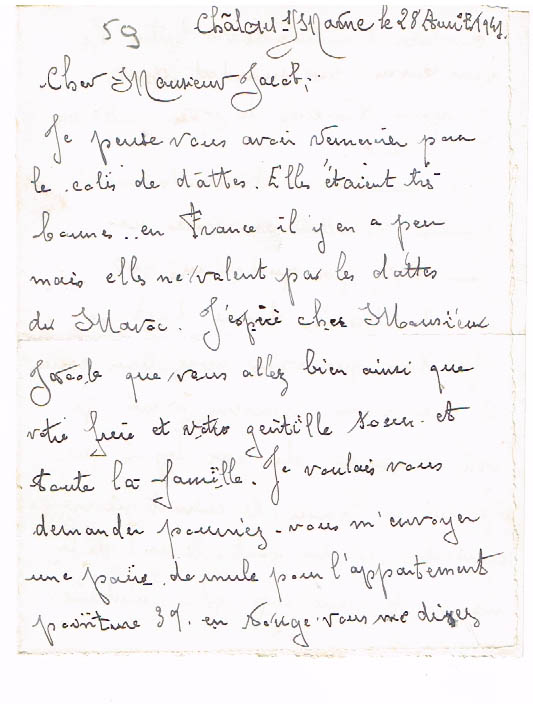 59
Châlons s/Marne le 28 Avril 1941.
Cher Monsieur Jacob,
Je pense vous avoir remercier pour
le colis de dattes. Elles étaient très
bonnes.. en France il y en a peu
mais elles ne valent pas les dattes
du Maroc. J'espère cher Monsieur
Jacob que vous allez bien ainsi que
votre frère et votre gentille soeur et
toute la famille. Je voulais vous
demander pourriez-vous m'envoyer
une paire de mule pour l'appartement
pointure 39. en rouge vous me direz